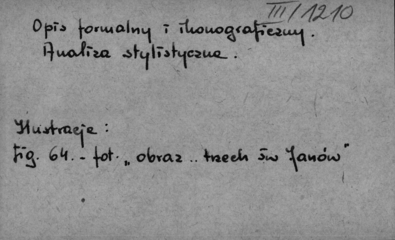 III/1210
Opis formalny i ikonograficzny.
Analiza stylistyczna.
Ilustracje:
Fig. 64. - fot. „obraz .. trzech św Janów"